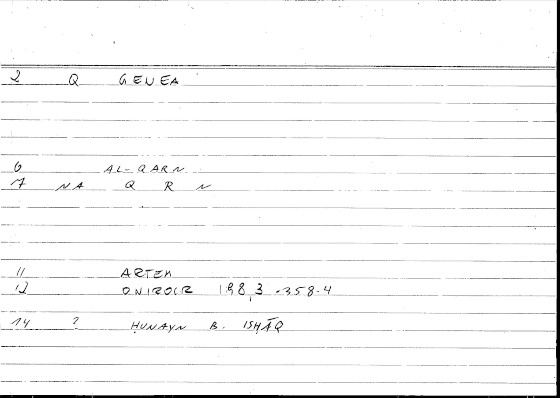 2 Q GENEA
6 AL-QARN
7 NA Q R N
11 ARTEM
12 ONIROCR 198,3 -358.4
14 ? ḤUNAYN B. ISḤĀQ